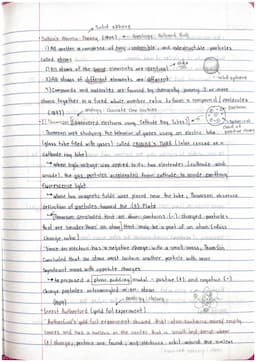 Solid sphere
Dalton's Atomic Theory (1803) ← Analogy: Billiard Ball
1) All matter is composed of tiny, indivisible, and indestructible particles
called atoms
2) All atoms of the same elements are identical
3) All atoms of different elements are different
solid sphere
3) Compounds and molecules are formed by chemically joining 2 or more
atoms together in a fixed whole number ratio to form a compound / molecules
(1897)
analogy: Chocolate Chip Cookies
J.J. Thomson (Discovered electrons using Cathode Ray Tubes)
Thomson was studying the behavior of gases using an electric tube
(glass tube filled with gases) called CROOKE'S TUBE (later called as a
cathode ray tube)
when high-voltage was applied to its two electrodes (cathode and
anode), the gas particles accelerated from cathode to anode emitting
fluorescence light
when two magnetic fields were placed near the tube, Thomson observed
deflection of particles toward the (+) Plate
Thomson concluded that an atom contains (-) charged particles
that are smaller than an atom that may be a part of an atom (Mass
charge ratio)
Since an electron has a negative charge with a small mass, Thomson
concluded that an atom must contain another particle with more
significant mass with opposite charges
He proposed a plum pudding model - positive (+) and negative (-)
charge particles intermingled in an atom
(1909)
Ernest Rutherford (gold foil experiment)
Rutherford's gold foil experiment showed that atom contains mostly empty
space, and has a nucleus at its center that is small and dense where
(+) charges, protons are found, and electrons orbit around the nucleus